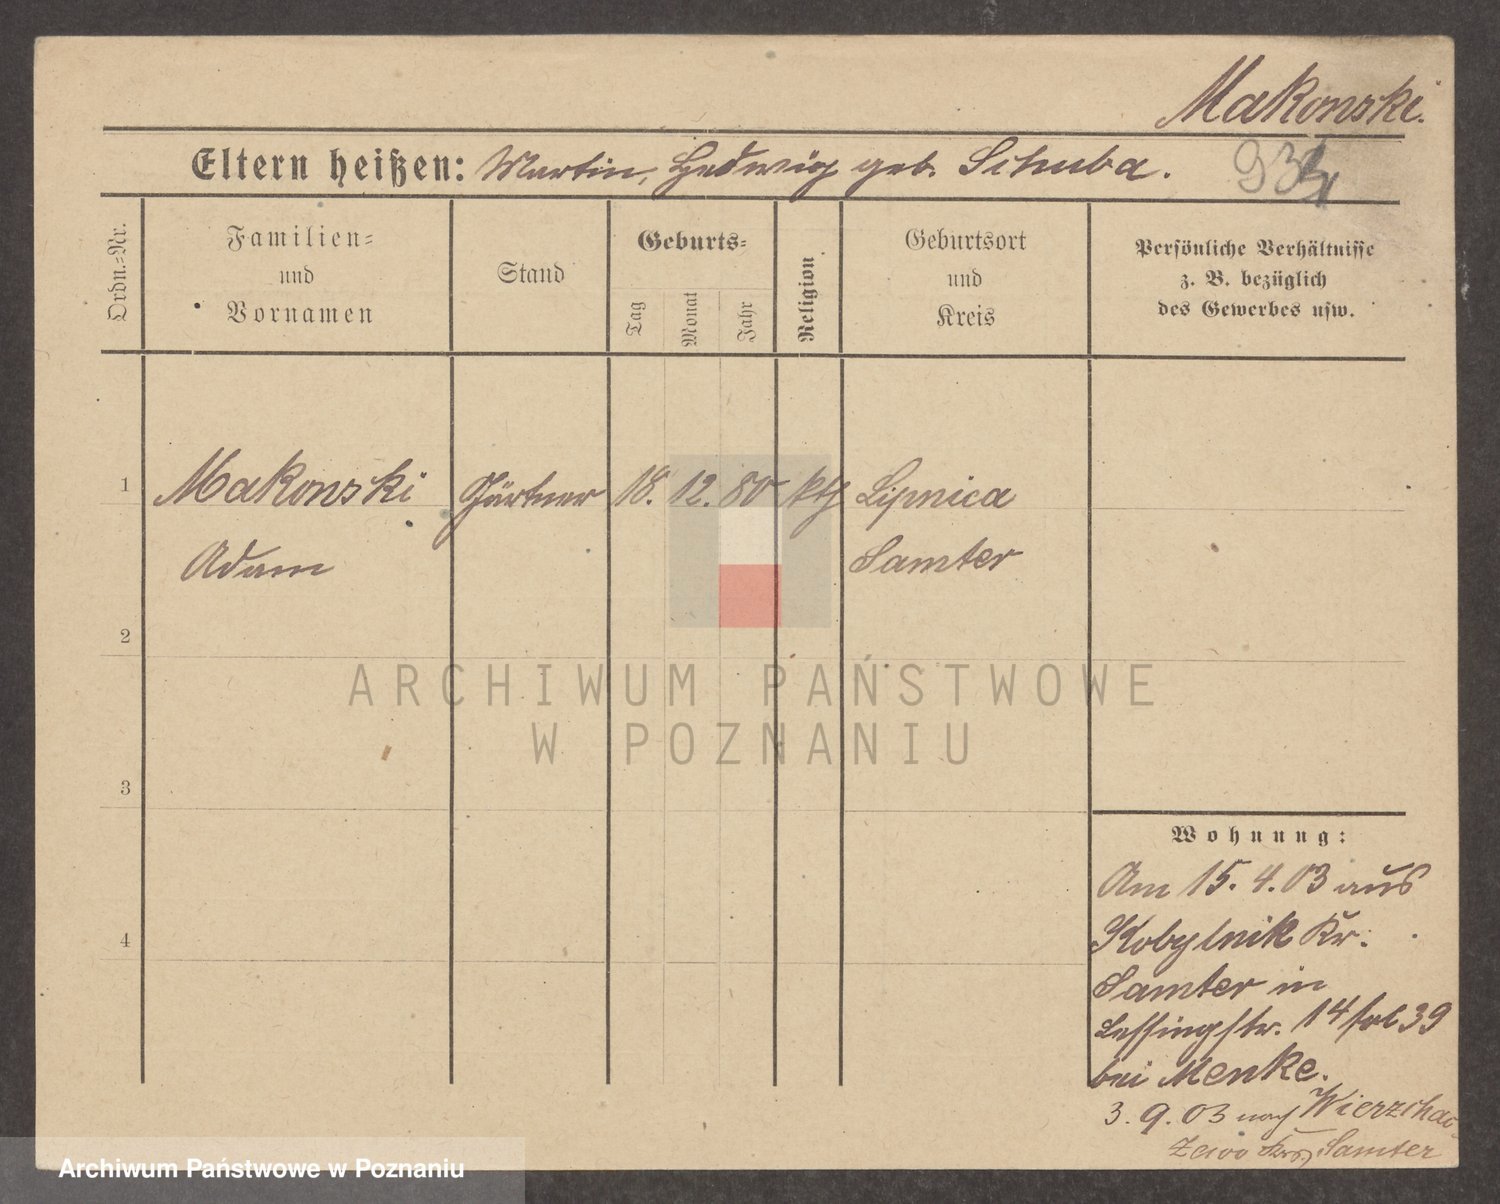 Makonski.
Eltern heißen: Martin, Hedwig geb. Schuba.
Ordn.=Nr.
Familien=
und
Vornamen
Stand
Geburts=
Tag
Monat
Jahr
Religion
Geburtsort
und
Kreis
Persönliche Verhältnisse
z. B. bezüglich
des Gewerbes usw.
1
Makonski Gärtner 18. 12. 80 kth Lipnica
Adam Samter
2
3
4
Wohnung:
Am 15. 4. 03 aus
Kobylnik Kr.
Samter in
Lessingstr. 14 fol 39
bei Menke.
3. 9. 03 nach Wierzchac-
zewo Samter
ARCHIWUM PAŃSTWOWE
W POZNANIU
Archiwum Państwowe w Poznaniu